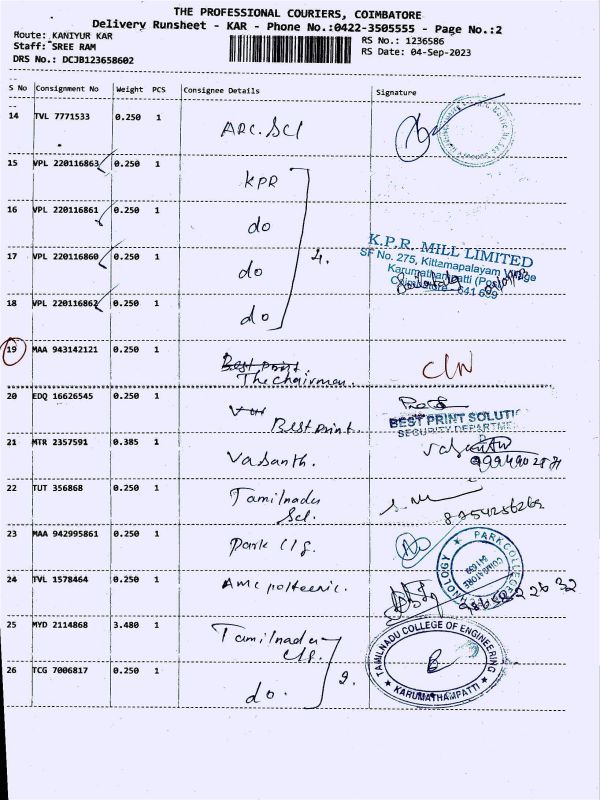 THE PROFESSIONAL COURIERS, COIMBATORE
Delivery Runsheet - KAR - Phone No.:0422-3505555 - Page No.:2
Route: KANIYUR KAR
RS No.: 1236586
Staff: SREE RAM
RS Date: 04-Sep-2023
DRS No.: DCJB123658602
S No Consignment No Weight PCS Consignee Details Signature
14 TVL 7771533 0.250 1 ARC. Scl
15 VPL 220116863 0.250 1 KPR
16 VPL 220116861 0.250 1 do
17 VPL 220116860 0.250 1 do 4.
K.P.R. MILL LIMITED
SF No. 275, Kittampalayam Village
Karumathampatti (Po)
Coimbatore - 641 659
18 VPL 220116862 0.250 1 do
19 MAA 943142121 0.250 1 Best print. The chairman. CLN
20 EDQ 16626545 0.250 1 Best print.
BEST PRINT SOLUTI
SECURITY DEPARTME
21 MTR 2357591 0.385 1 Vasanth. Vasanth
22 TUT 356868 0.250 1 Tamilnadu Scl. 8754256262
23 MAA 942995861 0.250 1 Park Clg.
PARK COLLEGE TECHNOLOGY
COIMBATORE
641 659
24 TVL 1578464 0.250 1 AMC polteenic.
25 MYD 2114868 3.480 1 Tamilnadu Clg.
TAMILNADU COLLEGE OF ENGINEERING
KARUMATHAMPATTI
26 TCG 7006817 0.250 1 do. 2.